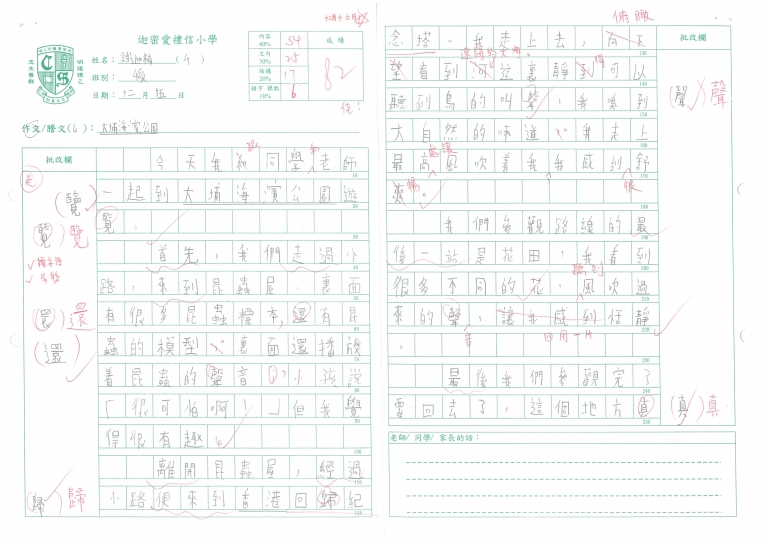 迦密愛禮信小學
明道律己
忠主善群
姓名：
班別：
日期：十二月 五 日
內容 40% 34
文句 30% 25
結構 20% 17
錯字 標點 10% 6
成績
82
佳！
作文/謄文(6)：大埔海濱公園
批改欄
今天我和同學和老師
一起到大埔海濱公園遊
覽。
首先，我們走過小
路，來到昆蟲屋。裏面
有很多昆蟲標本，還有昆
蟲的模型，裏面還播放
着昆蟲的聲音，小孩說
「很可怕啊！」但我覺
得很有趣。
離開昆蟲屋，經過
小路便來到香港回歸紀
(覽)
覽 覽
還 還
(還)
(歸) 歸
俯瞰
念塔。我走上去，有天
望看到河這裏靜到可以
聽到鳥的叫聲，我嗅到
大自然的味道。我走上
最高處讓風吹着我我感到舒
爽暢。
很
我們參觀路線的最
後一站是花田，我看到
很多不同的花，風吹過
聽到
來的聲，讓我感到恬靜
音
四周一片
。
最後我們參觀完了
要回去了，這個地方真
批改欄
(聲) 聲
(真) 真
老師/ 同學/ 家長的話：
10
20
30
40
50
60
70
80
90
100
110
120
130
140
150
160
170
180
190
200
210
220
230
240